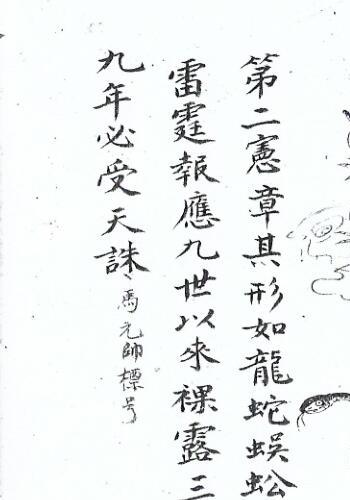 第二憲章其形如龍蛇蜈蚣
雷霆報應九世以來裸露三
九年必受天誅、馬元帥標号